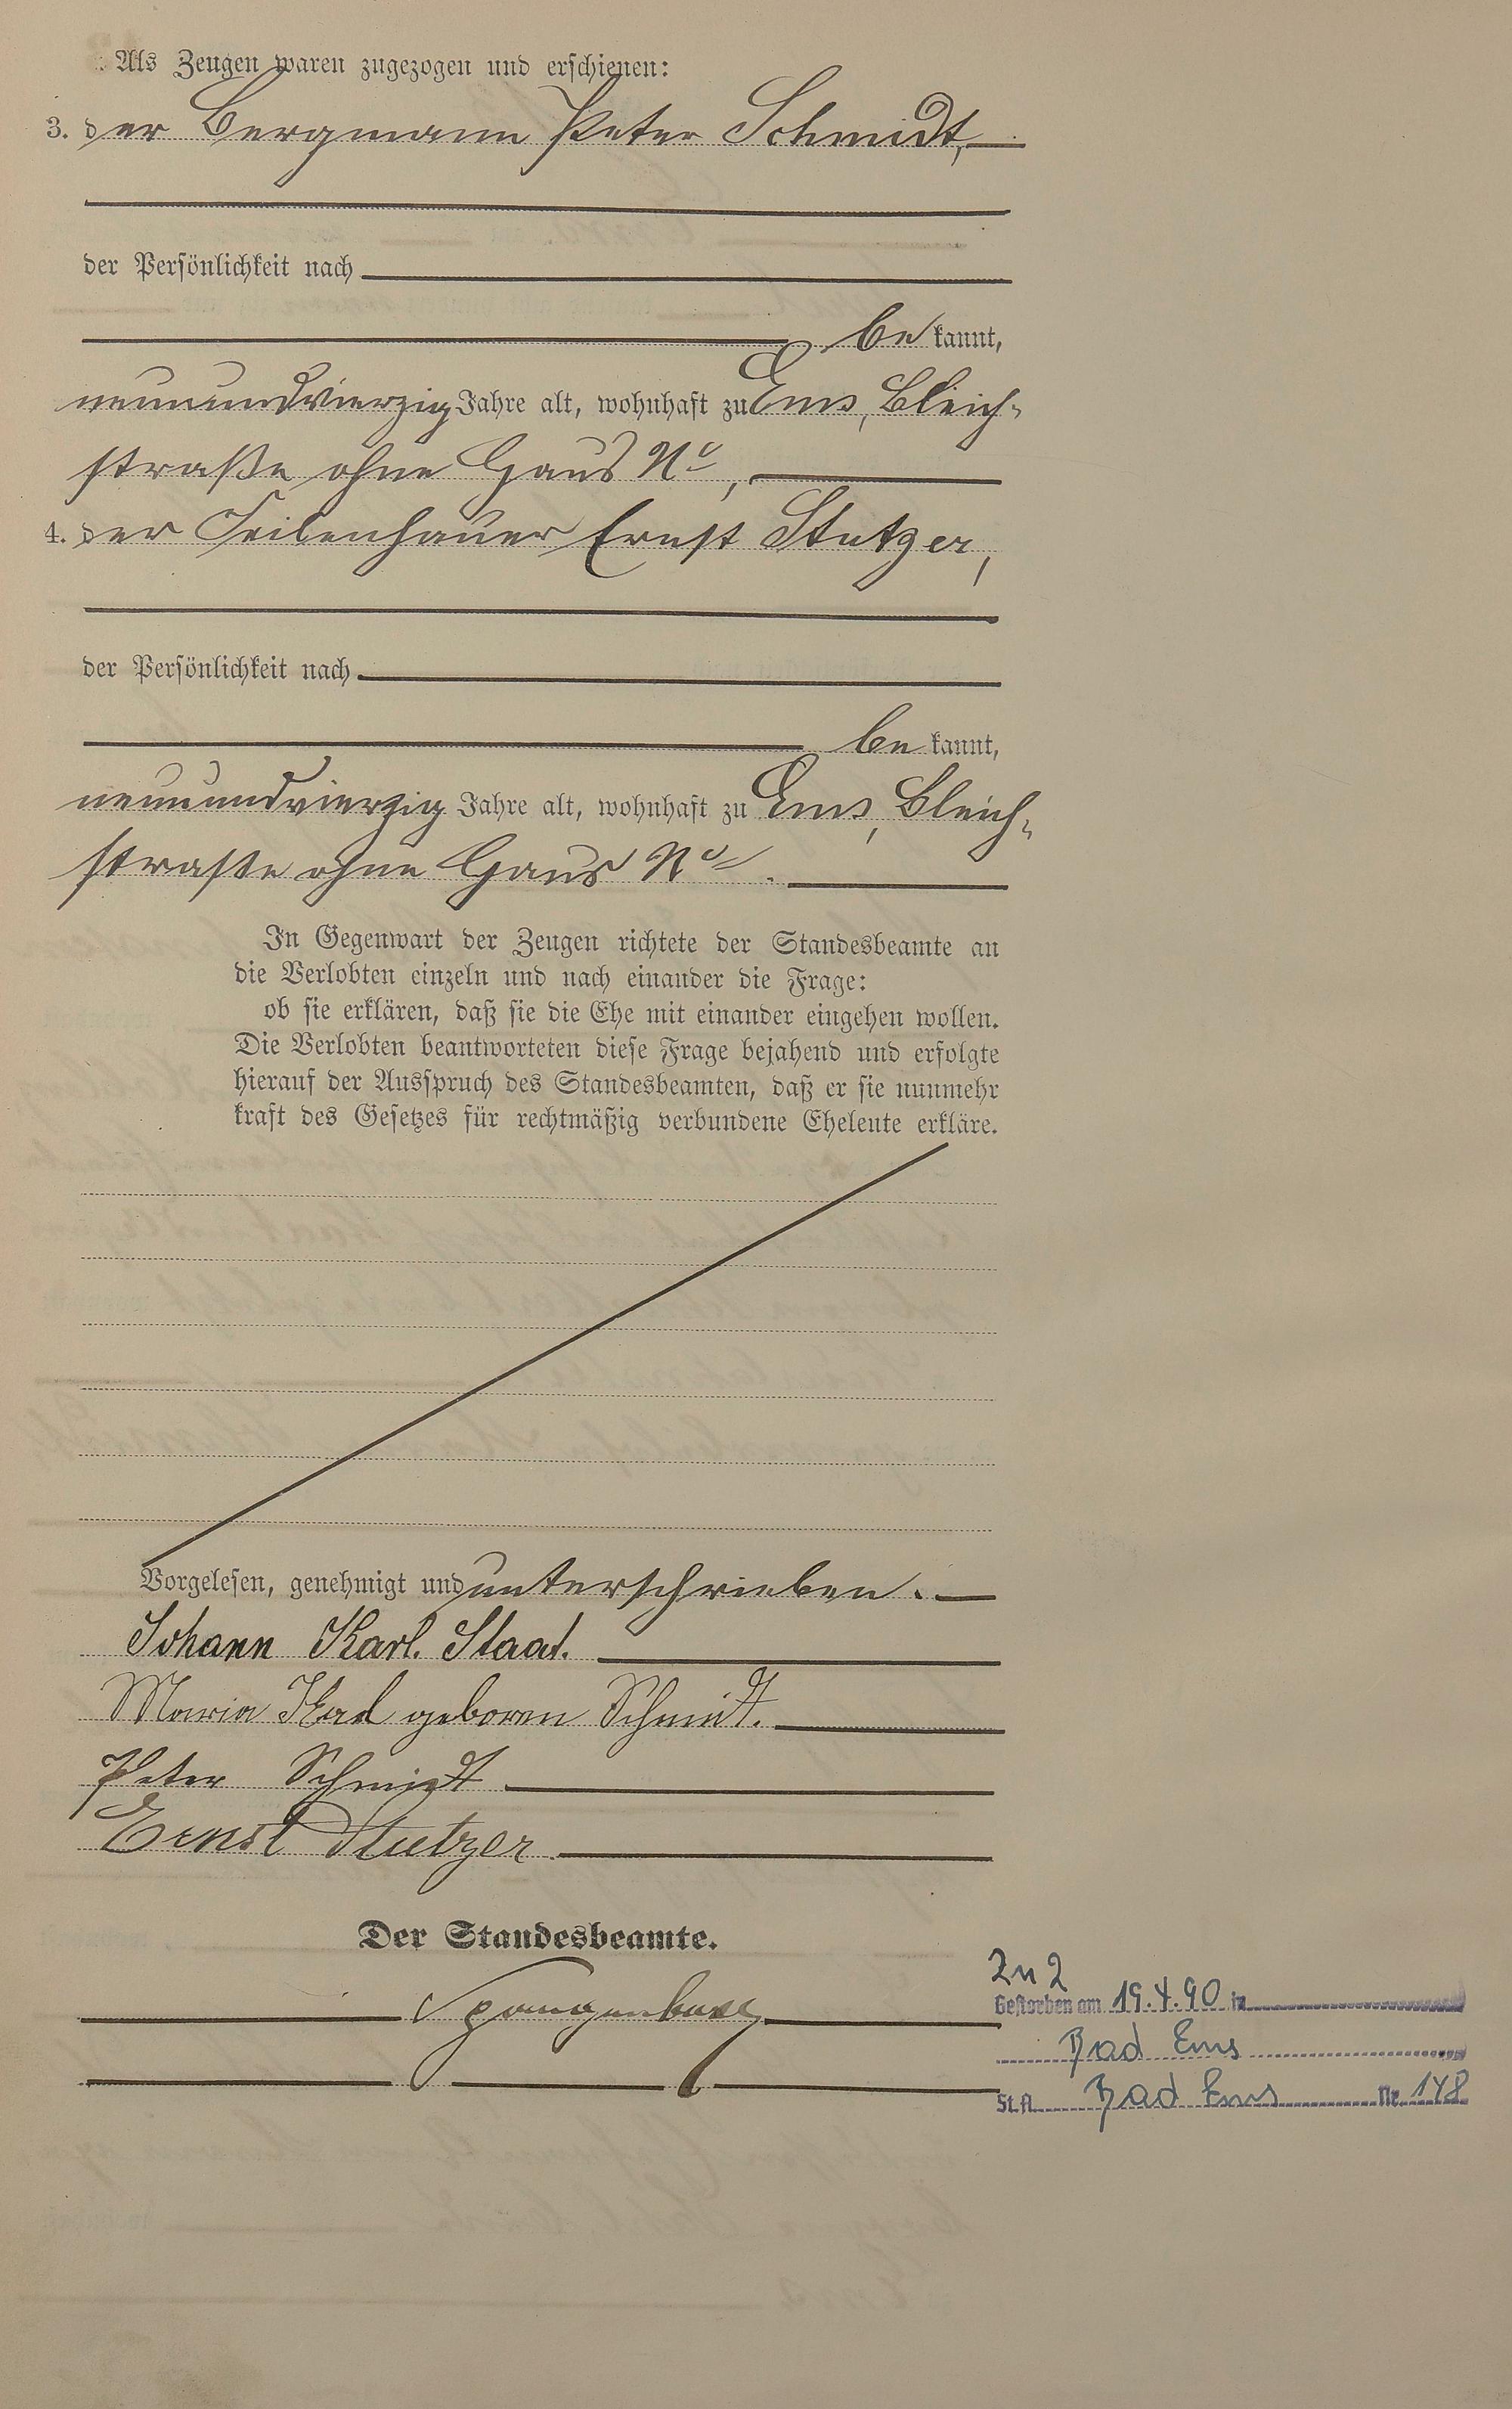 Als Zeugen waren zugezogen und erschienen:
3. der Bergmann Peter Schmidt,
der Persönlichkeit nach
be kannt,
neunundvierzig Jahre alt, wohnhaft zu Ems, Bleich-
straße ohne Haus No,
4. der Feilenhauer Ernst Stutzer,
der Persönlichkeit nach
be kannt,
neunundvierzig Jahre alt, wohnhaft zu Ems, Bleich-
straße ohne Haus No.
In Gegenwart der Zeugen richtete der Standesbeamte an
die Verlobten einzeln und nach einander die Frage:
ob sie erklären, daß sie die Ehe mit einander eingehen wollen.
Die Verlobten beantworteten diese Frage bejahend und erfolgte
hierauf der Ausspruch des Standesbeamten, daß er sie nunmehr
kraft des Gesetzes für rechtmäßig verbundene Eheleute erkläre.
Vorgelesen, genehmigt und unterschrieben.
Johann Karl. Staat.
Maria geboren Schmidt.
Peter Schmidt
Ernst Stutzer
Der Standesbeamte.
Spangenberg
Zu 2
Gestorben am 19.4.90 in
Bad Ems
St.A. Bad Ems Nr. 148